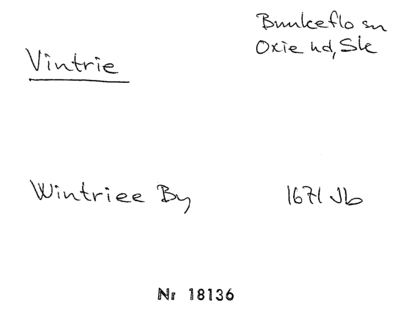 Bunkeflo sn
Oxie hd, Sk
Vintrie
Wintriee By 1671 Jb
Nr 18136